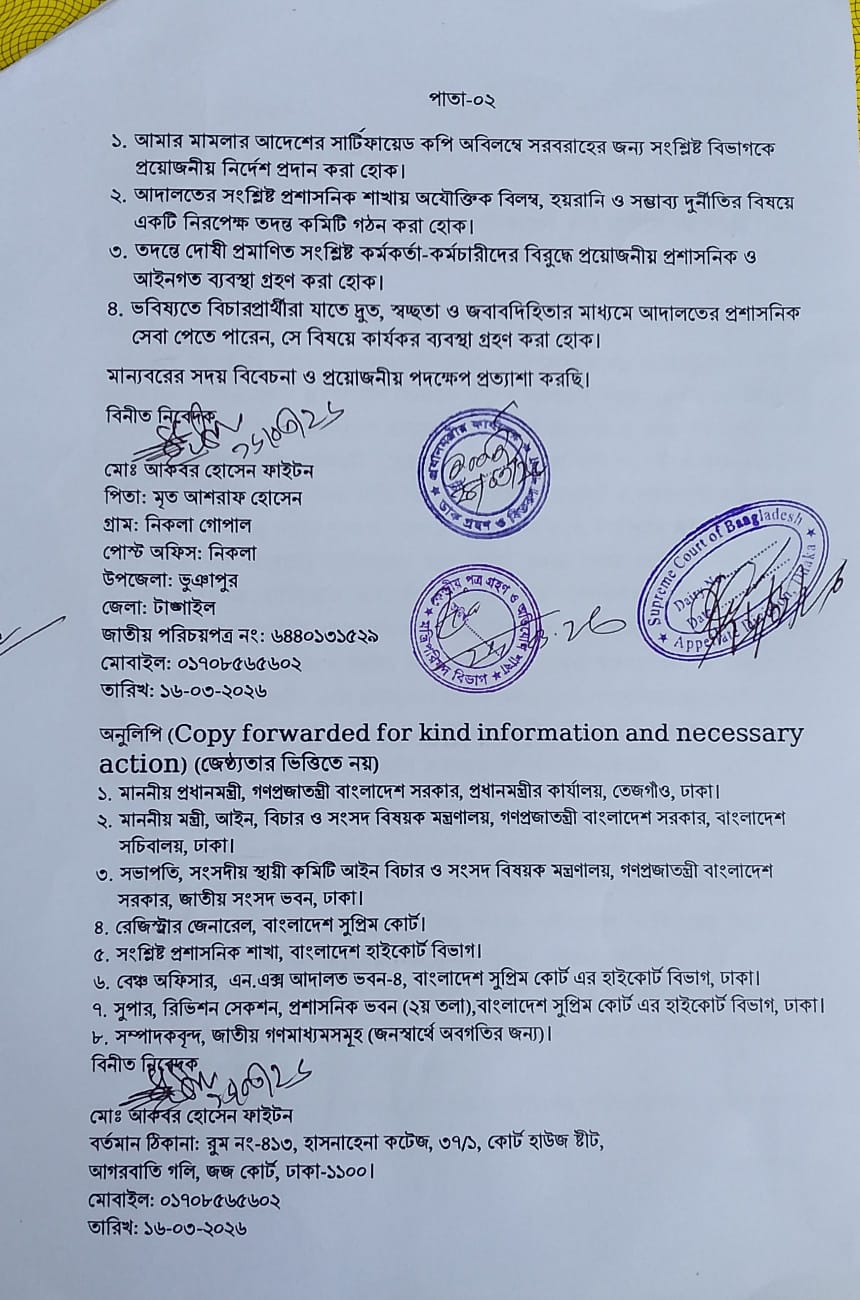 পাতা-০২
১. আমার মামলার আদেশের সার্টিফায়েড কপি অবিলম্বে সরবরাহের জন্য সংশ্লিষ্ট বিভাগকে
প্রয়োজনীয় নির্দেশ প্রদান করা হোক।
২. আদালতের সংশ্লিষ্ট প্রশাসনিক শাখায় অযৌক্তিক বিলম্ব, হয়রানি ও সম্ভাব্য দুর্নীতির বিষয়ে
একটি নিরপেক্ষ তদন্ত কমিটি গঠন করা হোক।
৩. তদন্তে দোষী প্রমাণিত সংশ্লিষ্ট কর্মকর্তা-কর্মচারীদের বিরুদ্ধে প্রয়োজনীয় প্রশাসনিক ও
আইনগত ব্যবস্থা গ্রহণ করা হোক।
৪. ভবিষ্যতে বিচারপ্রার্থীরা যাতে দ্রুত, স্বচ্ছতা ও জবাবদিহিতার মাধ্যমে আদালতের প্রশাসনিক
সেবা পেতে পারেন, সে বিষয়ে কার্যকর ব্যবস্থা গ্রহণ করা হোক।
মান্যবরের সদয় বিবেচনা ও প্রয়োজনীয় পদক্ষেপ প্রত্যাশা করছি।
বিনীত নিবেদক
মোঃ আকবর হোসেন ফাইটন
পিতা: মৃত আশরাফ হোসেন
গ্রাম: নিকলা গোপাল
পোস্ট অফিস: নিকলা
উপজেলা: ভুঞাপুর
জেলা: টাঙ্গাইল
জাতীয় পরিচয়পত্র নং: ৬৪৪০১৩১৫২৯
মোবাইল: ০১৭০৮৫৬৫৬০২
তারিখ: ১৬-০৩-২০২৬
প্রধানমন্ত্রীর কার্যালয়
ডাক গ্রহণ ও বিতরণ
কেন্দ্রীয় পত্র গ্রহণ ও অভিযোগ শাখা
মন্ত্রিপরিষদ বিভাগ
Supreme Court of Bangladesh
Dairy N
Appellate Division, Dhaka
অনুলিপি (Copy forwarded for kind information and necessary
action) (জেষ্ঠ্যতার ভিত্তিতে নয়)
১. মাননীয় প্রধানমন্ত্রী, গণপ্রজাতন্ত্রী বাংলাদেশ সরকার, প্রধানমন্ত্রীর কার্যালয়, তেজগাঁও, ঢাকা।
২. মাননীয় মন্ত্রী, আইন, বিচার ও সংসদ বিষয়ক মন্ত্রণালয়, গণপ্রজাতন্ত্রী বাংলাদেশ সরকার, বাংলাদেশ
সচিবালয়, ঢাকা।
৩. সভাপতি, সংসদীয় স্থায়ী কমিটি আইন বিচার ও সংসদ বিষয়ক মন্ত্রণালয়, গণপ্রজাতন্ত্রী বাংলাদেশ
সরকার, জাতীয় সংসদ ভবন, ঢাকা।
৪. রেজিস্ট্রার জেনারেল, বাংলাদেশ সুপ্রিম কোর্ট।
৫. সংশ্লিষ্ট প্রশাসনিক শাখা, বাংলাদেশ হাইকোর্ট বিভাগ।
৬. বেঞ্চ অফিসার, এন.এক্স আদালত ভবন-৪, বাংলাদেশ সুপ্রিম কোর্ট এর হাইকোর্ট বিভাগ, ঢাকা।
৭. সুপার, রিভিশন সেকশন, প্রশাসনিক ভবন (২য় তলা),বাংলাদেশ সুপ্রিম কোর্ট এর হাইকোর্ট বিভাগ, ঢাকা।
৮. সম্পাদকবৃন্দ, জাতীয় গণমাধ্যমসমূহ (জনস্বার্থে অবগতির জন্য)।
বিনীত নিবেদক
মোঃ আকবর হোসেন ফাইটন
বর্তমান ঠিকানা: রুম নং-৪১৩, হাসনাহেনা কটেজ, ৩৭/১, কোর্ট হাউজ ষ্টীট,
আগরবাতি গলি, জজ কোর্ট, ঢাকা-১১০০।
মোবাইল: ০১৭০৮৫৬৫৬০২
তারিখ: ১৬-০৩-২০২৬